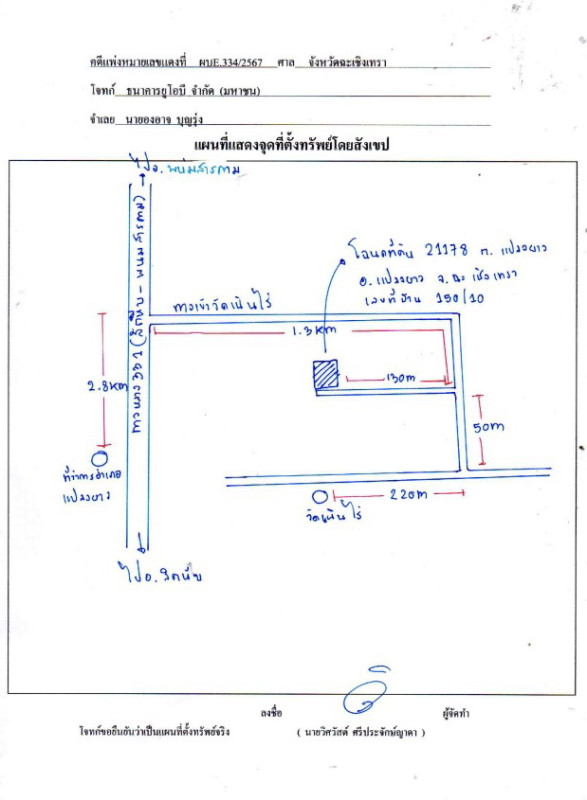 คดีแพ่งหมายเลขแดงที่ ผบE.334/2567 ศาล จังหวัดฉะเชิงเทรา
โจทก์ ธนาคารยูโอบี จำกัด (มหาชน)
จำเลย นายองอาจ บุญรุ่ง
แผนที่แสดงจุดที่ตั้งทรัพย์โดยสังเขป
ไป อ. พนมสารคาม
โฉนดที่ดิน 21178 ต. แปลงยาว
อ. แปลงยาว จ. ฉะเชิงเทรา
เลขที่บ้าน 150/10
ทางเข้าวัดเนินไร่
1.3 km
2.8 km
130m
50m
ที่ว่าการอำเภอ
แปลงยาว
220m
วัดเนินไร่
ไป อ. สัตหีบ
ลงชื่อ ผู้จัดทำ
โจทก์ขอยืนยันว่าเป็นแผนที่ตั้งทรัพย์จริง ( นายวิศวัสต์ ศรีประจักษ์ญาดา )